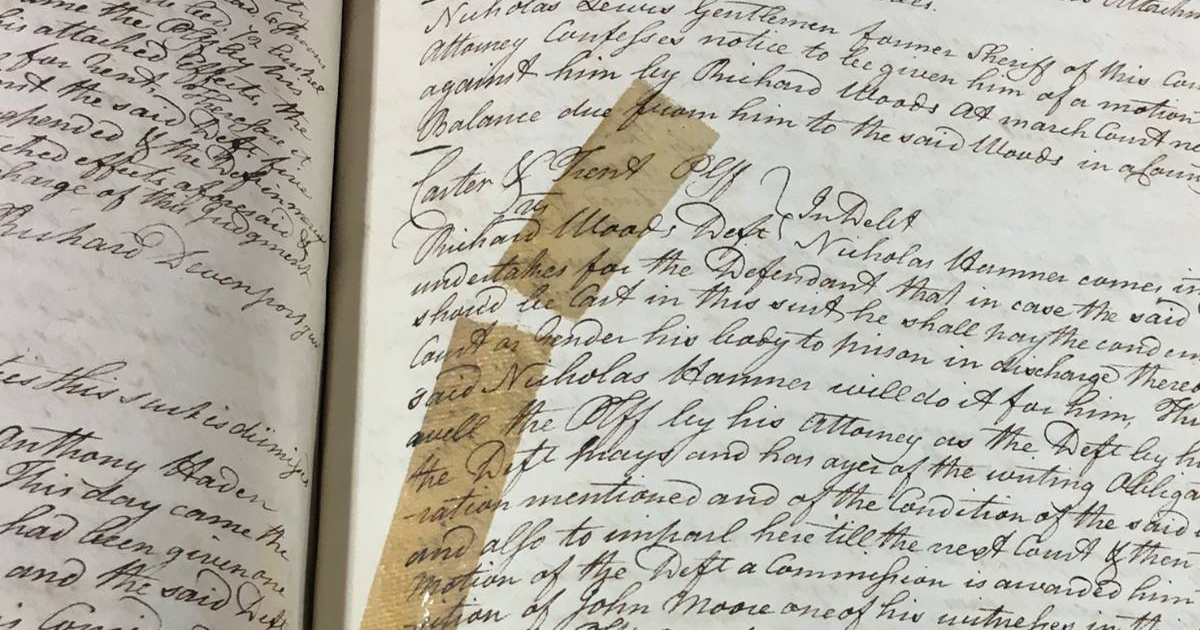 his attached Effects, the
for Rent. Therefore it
the said Deft fine
suspended & the Defendant
attached effects aforesaid &
charge of this Judgment
Richard Devenport
this suit is dismisses
Anthony Haden
This day came the
had been given on
and the said Deft
Nicholas Lewis Gentlemen former Sheriff of this
Attorney Confesses notice to be given him of a motion
against him by Richard Woods At march Court
Balance due from him to the said Woods in a
Carter & Trent Plff
vs
Richard Woods Deft } In Debt
Nicholas Hamner comes
undertakes for the Defendant that in case the said
should be Cast in this suit he shall pay the
Court or render his body to prison in discharge
said Nicholas Hamner will do it for him, This
well the Plff by his Attorney as the Deft by
the Deft prays and has oyer of the writing Obliga
-ration mentioned and of the Condition of the said
and also to imparl here till the next Court & then
motion of the Deft a Commission is awarded him
of John Moore one of his witnesses in the